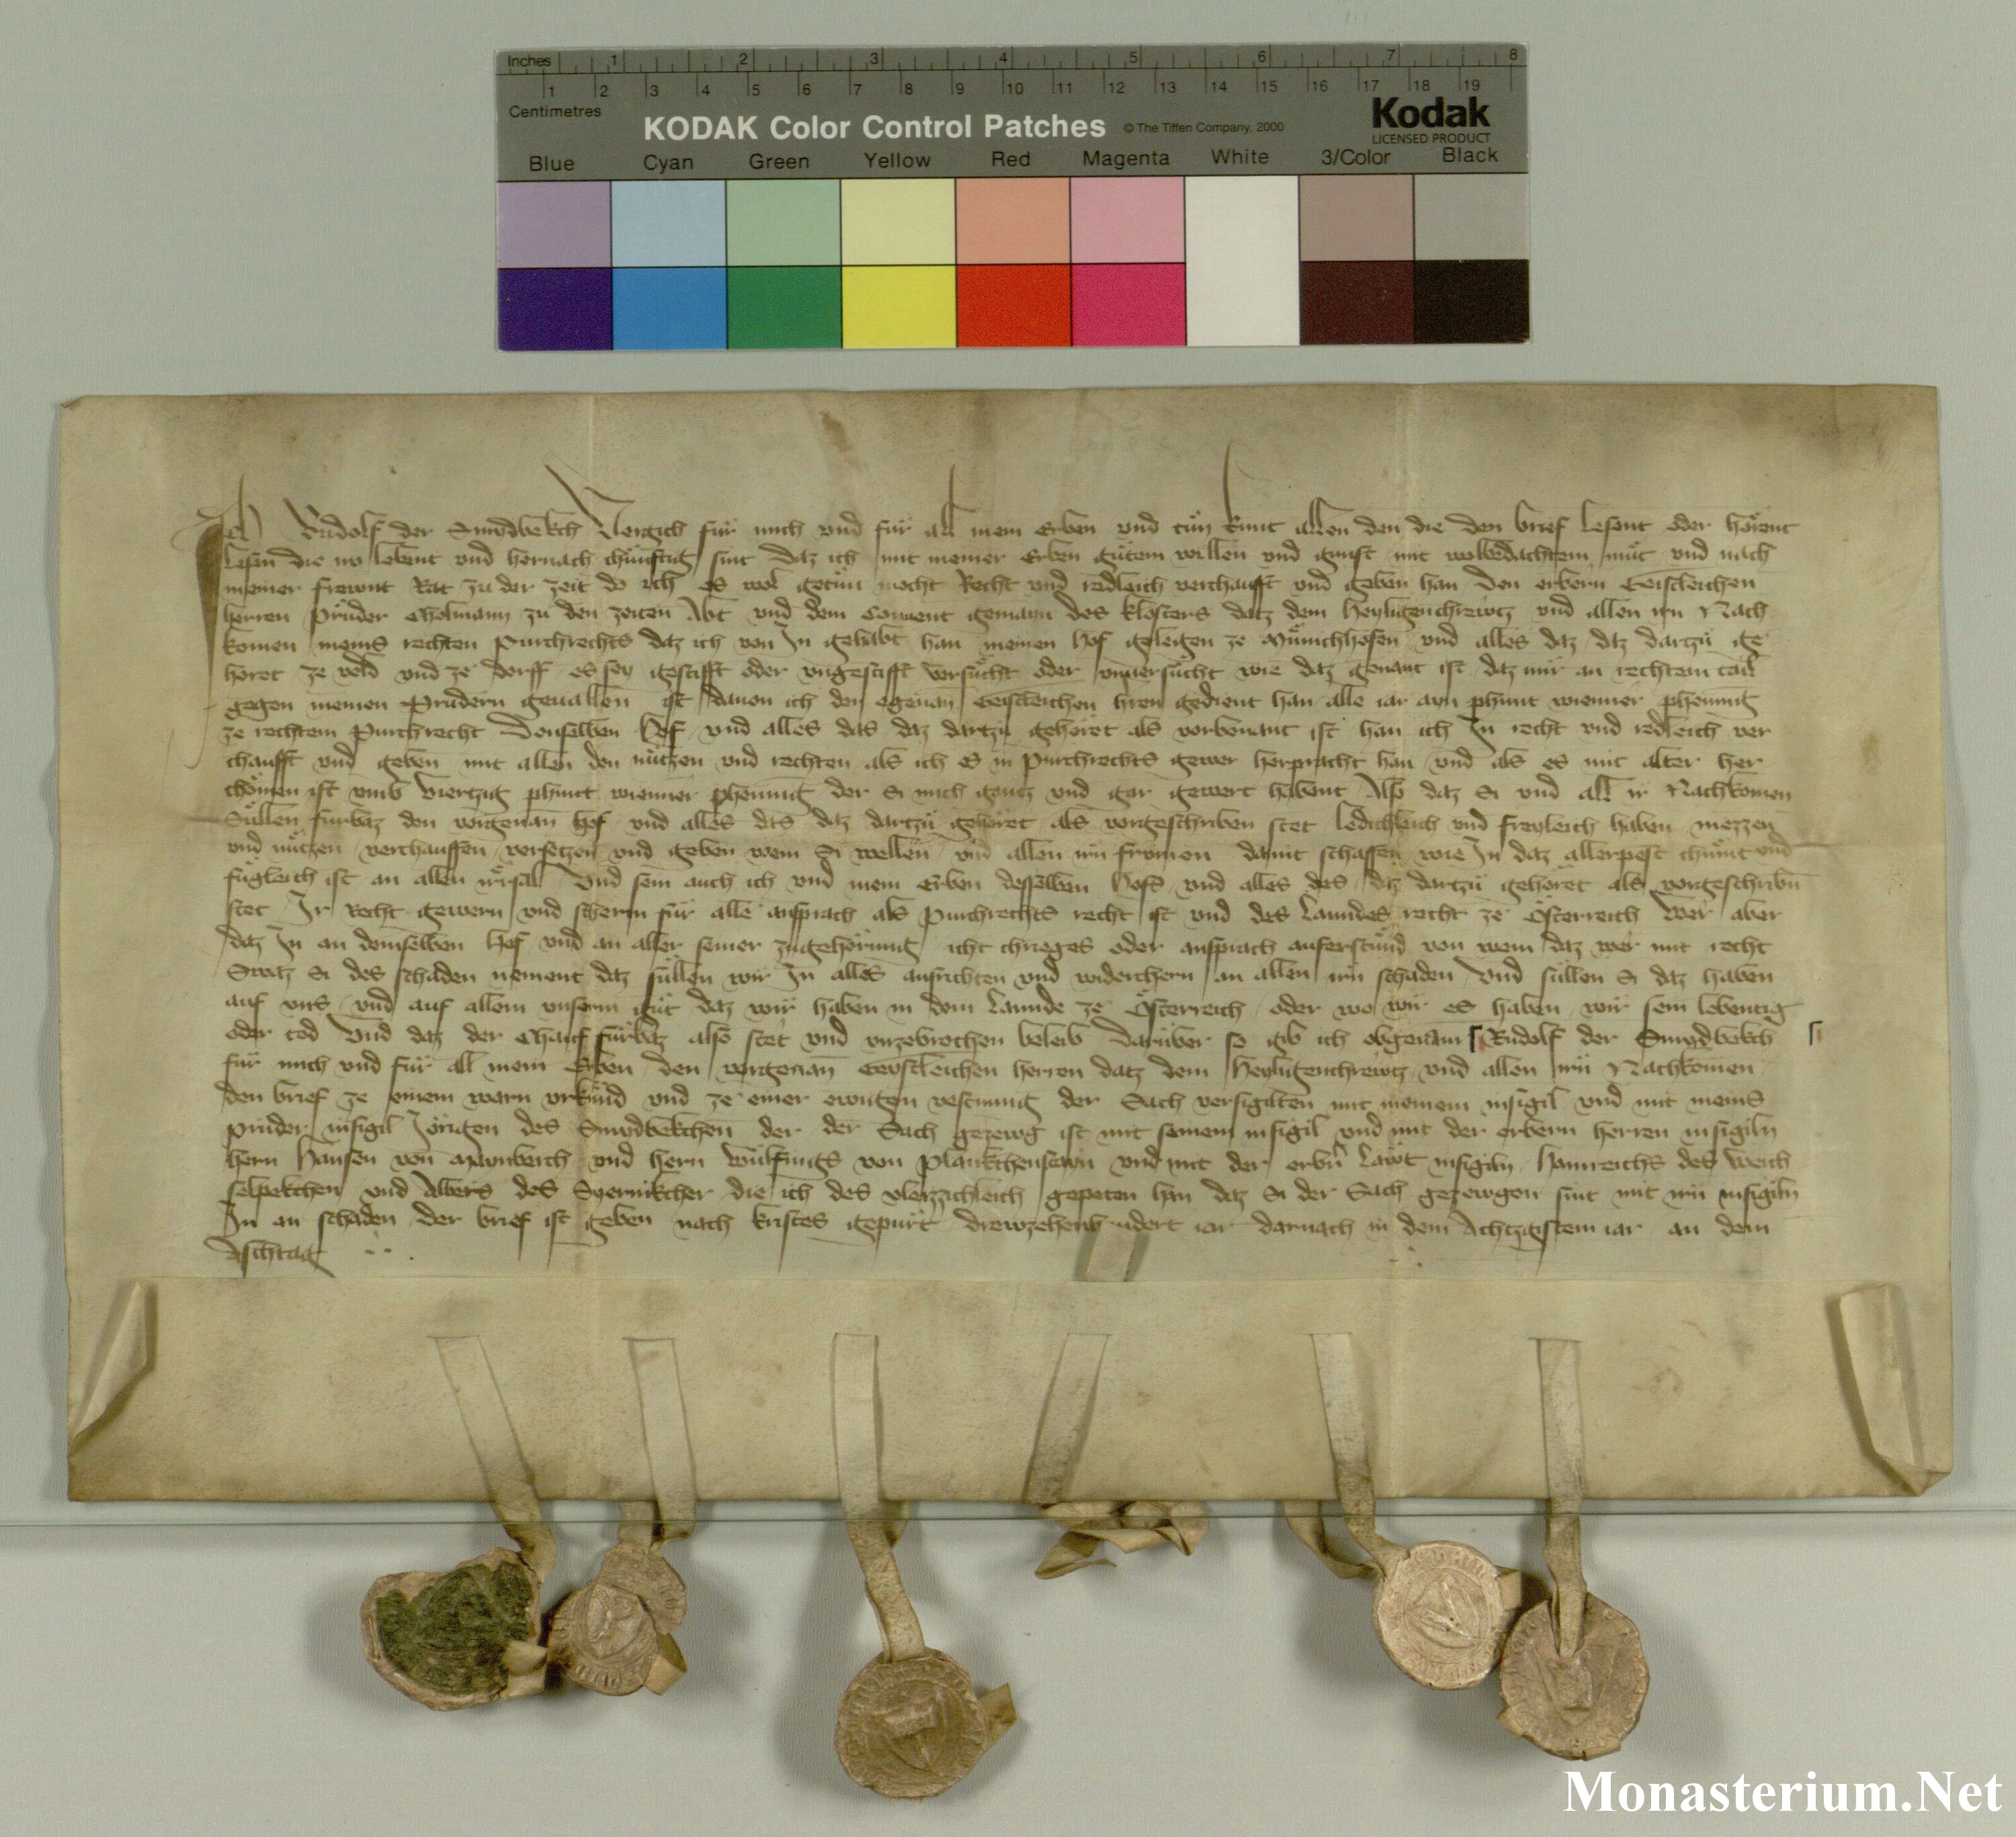 Inches 1 2 3 4 5 6 7 8
1 2 3 4 5 6 7 8 9 10 11 12 13 14 15 16 17 18 19
Centimetres
KODAK Color Control Patches © The Tiffen Company, 2000 Kodak
LICENSED PRODUCT
Blue Cyan Green Yellow Red Magenta White 3/Color Black
Ich Rudolf der Smydbekch Vergich für mich vnd für all mein Erben vnd tůn kunt allen den die den brief Lesent oder hörent
Lesen die nv lebent vnd hernach chünftig sint daz ich mit meiner Erben gůtem willen vnd gunst mit wolbedachtem můt vnd nach
meiner frewnt Rat zu der zeit do ich es wol getůn mocht Recht vnd redleich verchaufft vnd geben han den erbern Geistleichen
herren Průder Cholmann zu den zeiten Abt vnd dem Conuent gemayn des klosters datz dem Heyligenchrewtz vnd allen irn Nach
komen meins rechten Purchrechts daz ich von In gehabt han meinen Hof gelegen ze Münichhofen vnd alles daz daz dartzů ge
höret ze veld vnd ze dorff es sey gestifft oder vngestifft versůcht oder vnuersůcht wie daz genant ist daz mir an rechtem tail
gegen meinen Prüdern geuallen ist dauon ich den egenan Geistleichen hren gedient han alle iar ayn phunt wienner phennig
ze rechtem Purchrecht Denselben Hof vnd alles das daz dartzů gehöret als vorbenant ist han ich In recht vnd redleich ver
chaufft vnd geben mit allen den nützen vnd rechten als ich es in Purchrechts gewer herpracht han vnd als es mit alter her
chömen ist vmb Viertzig phunt wienner phennig der Si mich gentz vnd gar gewert habent Also daz Si vnd all ir Nachkomen
Süllen fürbaz den vorgenan Hof vnd alles das daz dartzů gehöret als vorgeschriben stet Ledichleich vnd freyleich haben niezzen
vnd nützen verchauffen versetzen vnd geben wem Si wellen vnd allen irn frůmen damit schaffen wie In daz allerpest chümt vnd
fügleich ist an allen irrsal Vnd sein auch ich vnd mein Erben desselben Hofs vnd alles des daz dartzů gehöret als vorgeschribn
stet Ir Recht gewern vnd scherm für alle ansprach als Purchrechts recht ist vnd des Lanndes recht ze Österreich Wer aber
daz In an demselben Hof vnd an aller seiner zugehörung icht chrieges oder ansprach auferstůnd von wem daz wer mit recht
Swaz Si des schaden nement daz süllen wir In alles ausrichten vnd widerchern an allen irn schaden Vnd süllen Si daz haben
auf vns vnd auf allem vnserm gůt daz wir haben in dem Lannde ze Österreich oder wo wir es haben wir sein lebentig
oder tod Vnd daz der Chauf fürbaz also stet vnd vnzebrochen beleib Darüber so gib ich obgenant Rudolf der Smydbekch
für mich vnd für all mein Erben den vorgenan Geystleichen herren datz dem Heyligenchrewtz vnd allen irn Nachkomen
den brief ze einem warn vrkund vnd ze einer ewigen vestnung der Sach versigilten mit meinem insigil vnd mit meins
prüder insigil Jörigen des Smydbekchen der der Sach gezewg ist mit seinem insigil vnd mit der erbern herren insigiln
hern Hansen von vnd hern Wülfings von vnd mit der erbn Läwt insigiln Hainreichs des
vnd Albers des die ich des vleizzichleich gepeten han daz Si der Sach gezewgen sint mit irn insigiln
In an schaden der brief ist geben nach kristes gepürt drewzehenhundert iar darnach in dem Achtzgistem iar an dem
Aschtag
Monasterium.Net